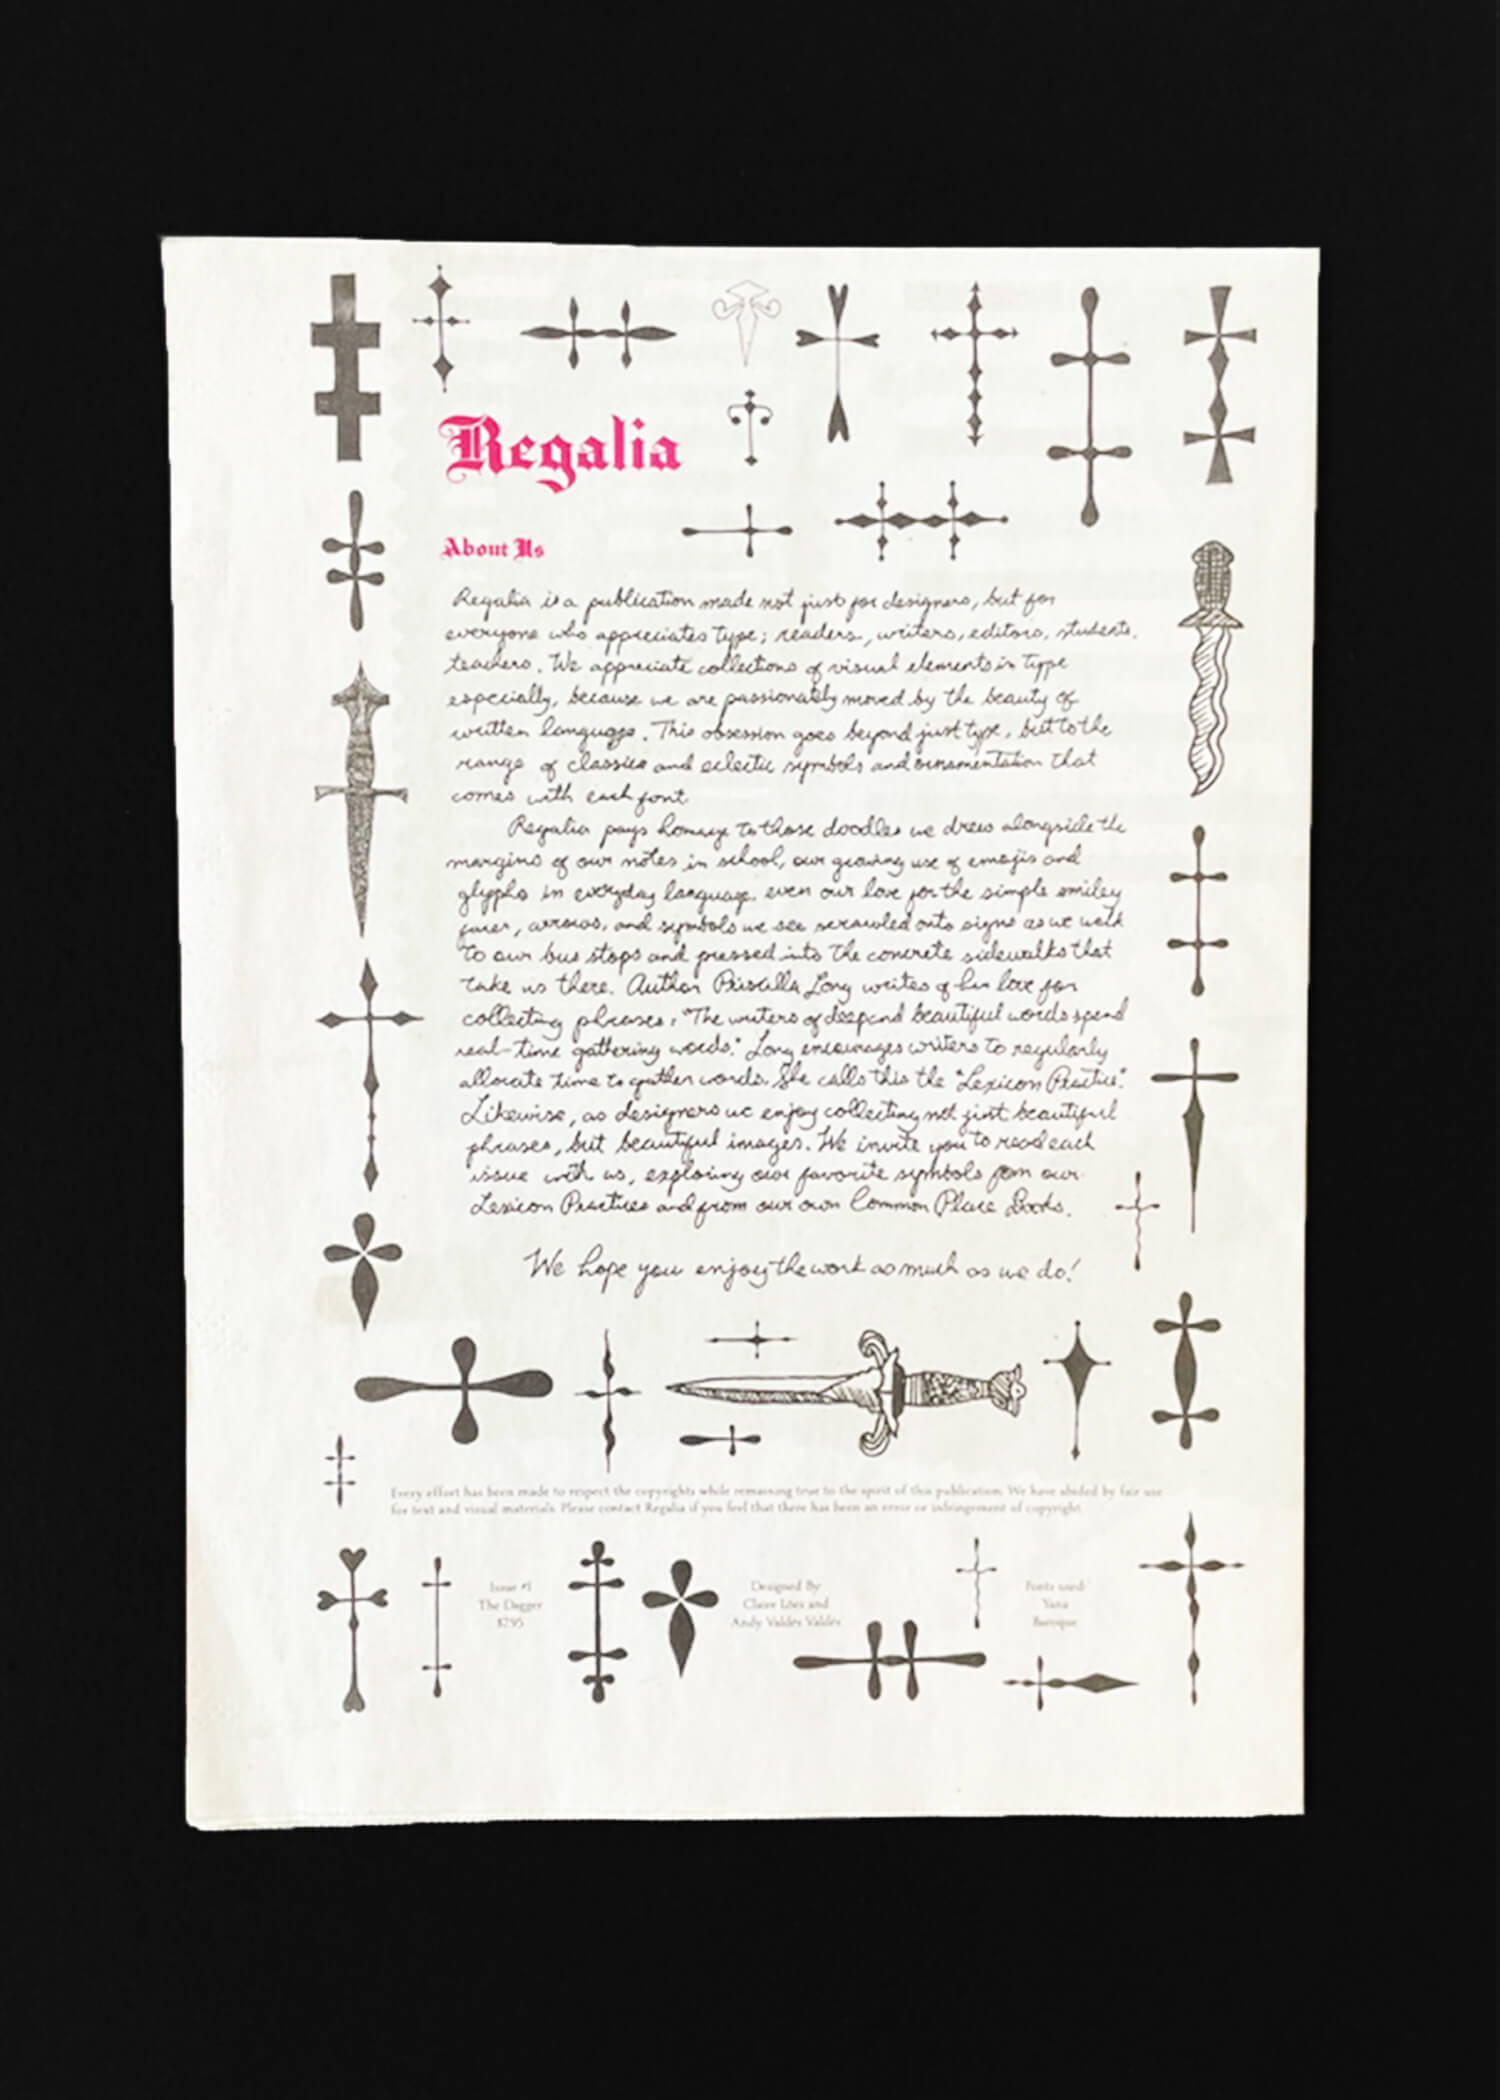 Regalia
About Us
Regalia is a publication made not just for designers, but for
everyone who appreciates type; readers, writers, editors, students,
teachers. We appreciate collections of visual elements in type
especially, because we are passionately moved by the beauty of
written language. This obsession goes beyond just type, but to the
range of classics and eclectic symbols and ornamentation that
comes with each font.
Regalia pays homage to those doodles we drew alongside the
margins of our notes in school, our growing use of emojis and
glyphs in everyday language, even our love for the simple smiley
faces, arrows, and symbols we see scrawled onto signs as we walk
to our bus stops and pressed into the concrete sidewalks that
take us there. Author Priscilla Long writes of her love for
collecting phrases, "The writers of deep and beautiful words spend
real-time gathering words." Long encourages writers to regularly
allocate time to gather words. She calls this the "Lexicon Practice."
Likewise, as designers we enjoy collecting not just beautiful
phrases, but beautiful images. We invite you to read each
issue with us, exploring our favorite symbols from our
Lexicon Practices and from our own Common Place Books.
We hope you enjoy the work as much as we do!
Every effort has been made to respect the copyrights while remaining true to the spirit of this publication. We have abided by fair use
for text and visual materials. Please contact Regalia if you feel that there has been an error or infringement of copyright.
Issue #1
The Dagger
$7.95
Designed By
Claire Lòes and
Andy Valdés Valdés
Fonts used:
Yana
Baroque